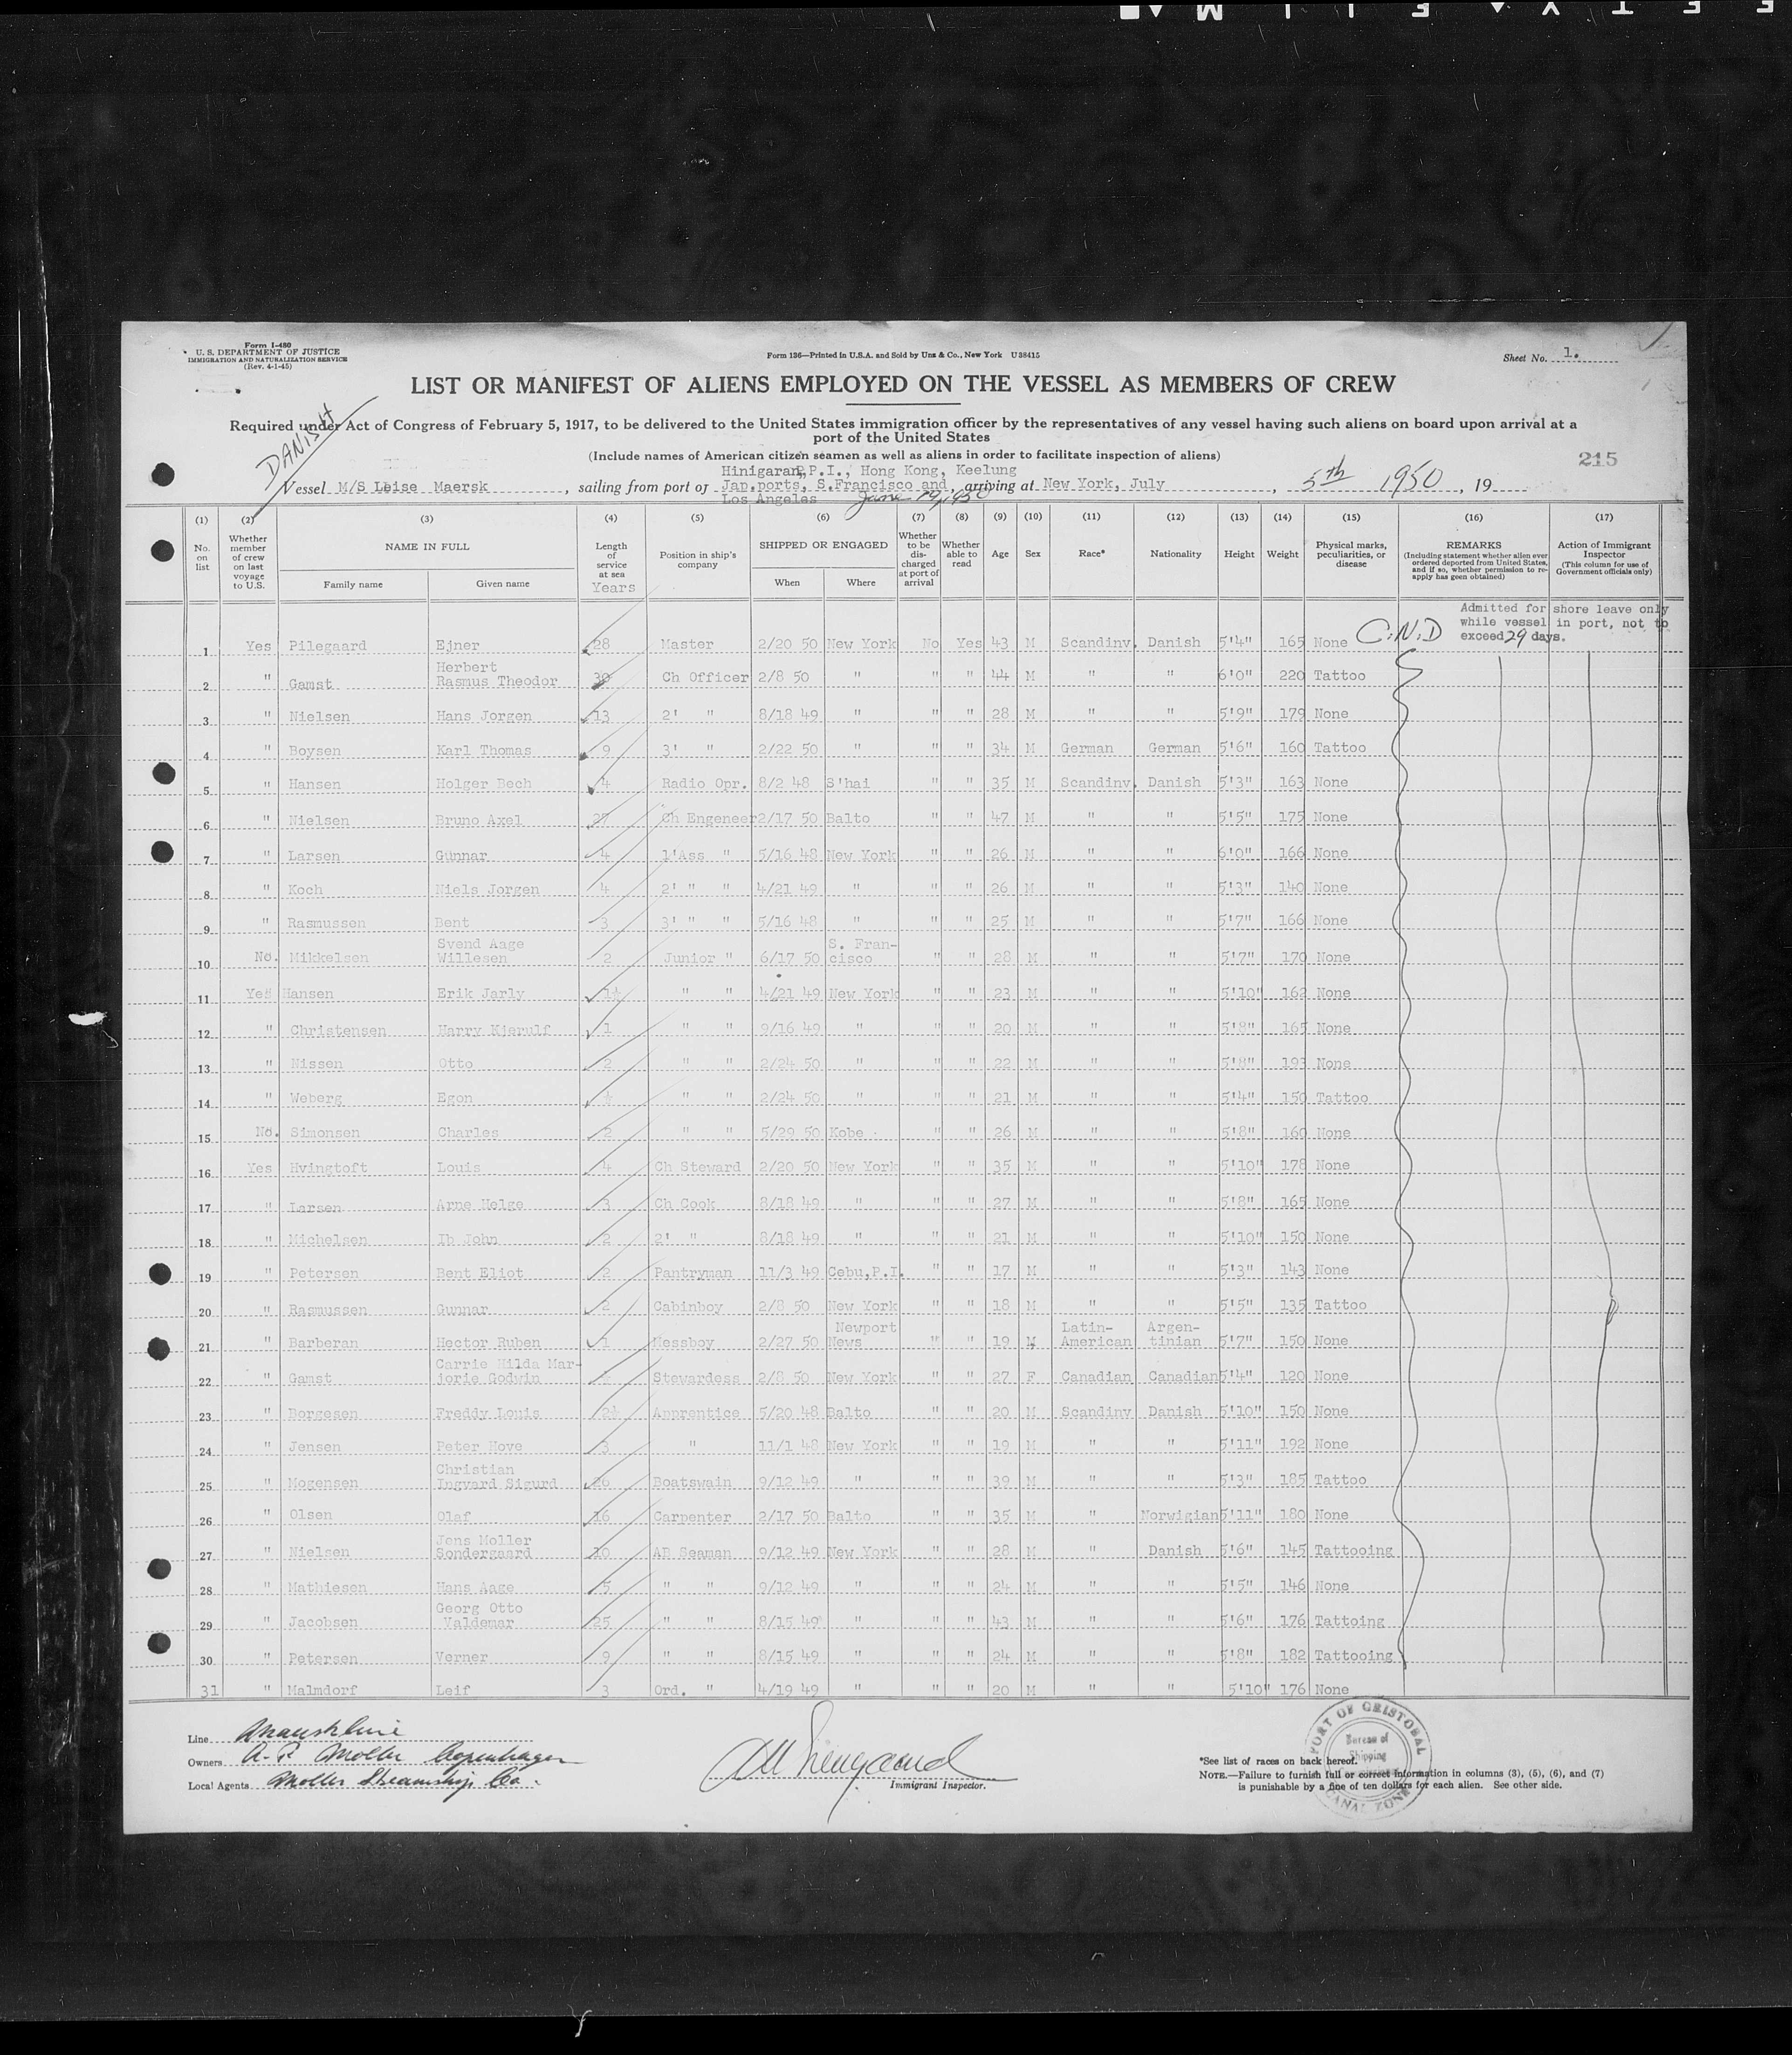 Form I-480
U. S. DEPARTMENT OF JUSTICE
IMMIGRATION AND NATURALIZATION SERVICE
(Rev. 4-1-45)
Form 136—Printed in U.S.A. and Sold by Unz & Co., New York U38415
Sheet No. 1.
LIST OR MANIFEST OF ALIENS EMPLOYED ON THE VESSEL AS MEMBERS OF CREW
DANISH
Required under Act of Congress of February 5, 1917, to be delivered to the United States immigration officer by the representatives of any vessel having such aliens on board upon arrival at a
port of the United States
(Include names of American citizen seamen as well as aliens in order to facilitate inspection of aliens)
215
Hinigaran, P.I., Hong Kong, Keelung
Vessel M/S Leise Maersk, sailing from port of Jap.ports, S.Francisco and, arriving at New York, July, 5th 1950, 19
Los Angeles June 19, 1950
(1) (2) (3) (4) (5) (6) (7) (8) (9) (10) (11) (12) (13) (14) (15) (16) (17)
No. on list
Whether member of crew on last voyage to U.S.
NAME IN FULL
Family name Given name
Length of service at sea
Years
Position in ship's company
SHIPPED OR ENGAGED
When Where
Whether to be discharged at port of arrival
Whether able to read
Age Sex Race* Nationality Height Weight
Physical marks, peculiarities, or disease
REMARKS
(Including statement whether alien ever ordered deported from United States, and if so, whether permission to re-apply has geen obtained)
Action of Immigrant Inspector
(This column for use of Government officials only)
Admitted for shore leave only
while vessel in port, not to
exceed 29 days.
1 Yes Pilegaard Ejner 28 Master 2/20 50 New York No Yes 43 M Scandinv. Danish 5'4" 165 None C.N.D
2 " Gamst Herbert Rasmus Theodor 30 Ch Officer 2/8 50 " " " 44 M " " 6'0" 220 Tattoo
3 " Nielsen Hans Jorgen 13 2' " 8/18 49 " " " 28 M " " 5'9" 179 None
4 " Boysen Karl Thomas 9 3' " 2/22 50 " " " 34 M German German 5'6" 160 Tattoo
5 " Hansen Holger Bech 4 Radio Opr. 8/2 48 S'hai " " 35 M Scandinv. Danish 5'3" 163 None
6 " Nielsen Bruno Axel 27 Ch Engeneer 2/17 50 Balto " " 47 M " " 5'5" 175 None
7 " Larsen Gunnar 4 1'Ass " 5/16 48 New York " " 26 M " " 6'0" 166 None
8 " Koch Niels Jorgen 4 2' " " 4/21 49 " " " 26 M " " 5'3" 140 None
9 " Rasmussen Bent 3 3' " " 5/16 48 " " " 25 M " " 5'7" 166 None
10 No. Mikkelsen Svend Aage Willesen 2 Junior " 6/17 50 S. Francisco " " 28 M " " 5'7" 170 None
11 Yes Hansen Erik Jarly 1½ " " 4/21 49 New York " " 23 M " " 5'10" 162 None
12 " Christensen Harry Kjerulf 1 " " 9/16 49 " " " 20 M " " 5'8" 165 None
13 " Nissen Otto 2 " " 2/24 50 " " " 22 M " " 5'8" 193 None
14 " Weberg Egon ½ " " 2/24 50 " " " 21 M " " 5'4" 150 Tattoo
15 No. Simonsen Charles 2 " " 5/29 50 Kobe " " 26 M " " 5'8" 160 None
16 Yes Hvingtoft Louis 4 Ch Steward 2/20 50 New York " " 35 M " " 5'10" 178 None
17 " Larsen Arne Helge 3 Ch Cook 8/18 49 " " " 27 M " " 5'8" 165 None
18 " Michelsen Ib John 2 2' " 8/18 49 " " " 21 M " " 5'10" 150 None
19 " Petersen Bent Eliot 2 Pantryman 11/3 49 Cebu,P.I. " " 17 M " " 5'3" 143 None
20 " Rasmussen Gunnar 2 Cabinboy 2/8 50 New York " " 18 M " " 5'5" 135 Tattoo
21 " Barberan Hector Ruben 1 Messboy 2/27 50 Newport News " " 19 M Latin-American Argentinian 5'7" 150 None
22 " Gamst Carrie Hilda Marjorie Godwin Stewardess 2/8 50 New York " " 27 F Canadian Canadian 5'4" 120 None
23 " Borgesen Freddy Louis 2½ Apprentice 5/20 48 Balto " " 20 M Scandinv Danish 5'10" 150 None
24 " Jensen Peter Hove 3 " 11/1 48 New York " " 19 M " " 5'11" 192 None
25 " Mogensen Christian Ingvard Sigurd 26 Boatswain 9/12 49 " " " 39 M " " 5'3" 185 Tattoo
26 " Olsen Olaf 16 Carpenter 2/17 50 Balto " " 35 M " Norwigian 5'11" 180 None
27 " Nielsen Jens Moller Sondergaard 10 AB Seaman 9/12 49 New York " " 28 M " Danish 5'6" 145 Tattooing
28 " Mathiesen Hans Aage 5 " " 9/12 49 " " " 24 M " " 5'5" 146 None
29 " Jacobsen Georg Otto Valdemar 25 " " 8/15 49 " " " 43 M " " 5'6" 176 Tattoing
30 " Petersen Verner 9 " " 8/15 49 " " " 24 M " " 5'8" 182 Tattooing
31 " Malmdorf Leif 3 Ord. " 4/19 49 " " " 20 M " " 5'10" 176 None
Line Maersk Line
Owners A. P. Moller Copenhagen
Local Agents Moller Steamship Co.
Immigrant Inspector.
PORT OF CRISTOBAL
Bureau of
Shipping
CANAL ZONE
*See list of races on back hereof.
NOTE.—Failure to furnish full or correct information in columns (3), (5), (6), and (7)
is punishable by a fine of ten dollars for each alien. See other side.